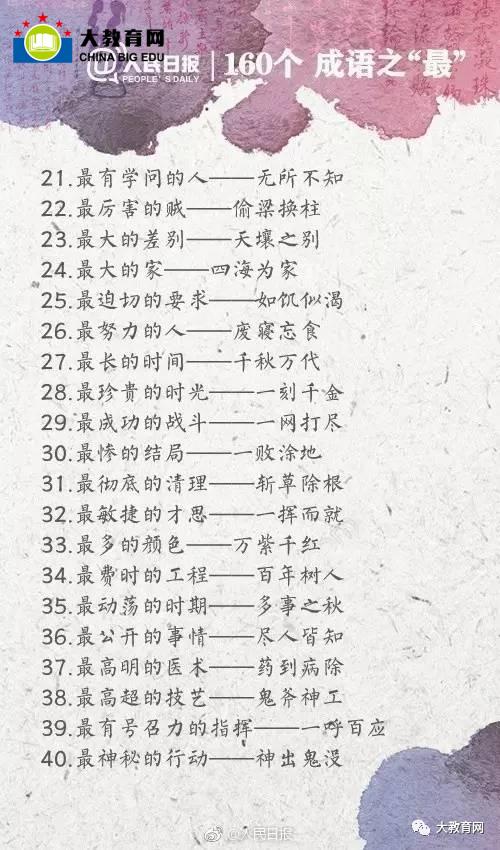 大教育网
CHINA BIG EDU
人民日报
PEOPLE'S DAILY
160个 成语之“最”
21.最有学问的人——无所不知
22.最厉害的贼——偷梁换柱
23.最大的差别——天壤之别
24.最大的家——四海为家
25.最迫切的要求——如饥似渴
26.最努力的人——废寝忘食
27.最长的时间——千秋万代
28.最珍贵的时光——一刻千金
29.最成功的战斗——一网打尽
30.最惨的结局——一败涂地
31.最彻底的清理——斩草除根
32.最敏捷的才思——一挥而就
33.最多的颜色——万紫千红
34.最费时的工程——百年树人
35.最动荡的时期——多事之秋
36.最公开的事情——尽人皆知
37.最高明的医术——药到病除
38.最高超的技艺——鬼斧神工
39.最有号召力的指挥——一呼百应
40.最神秘的行动——神出鬼没
@人民日报
大教育网